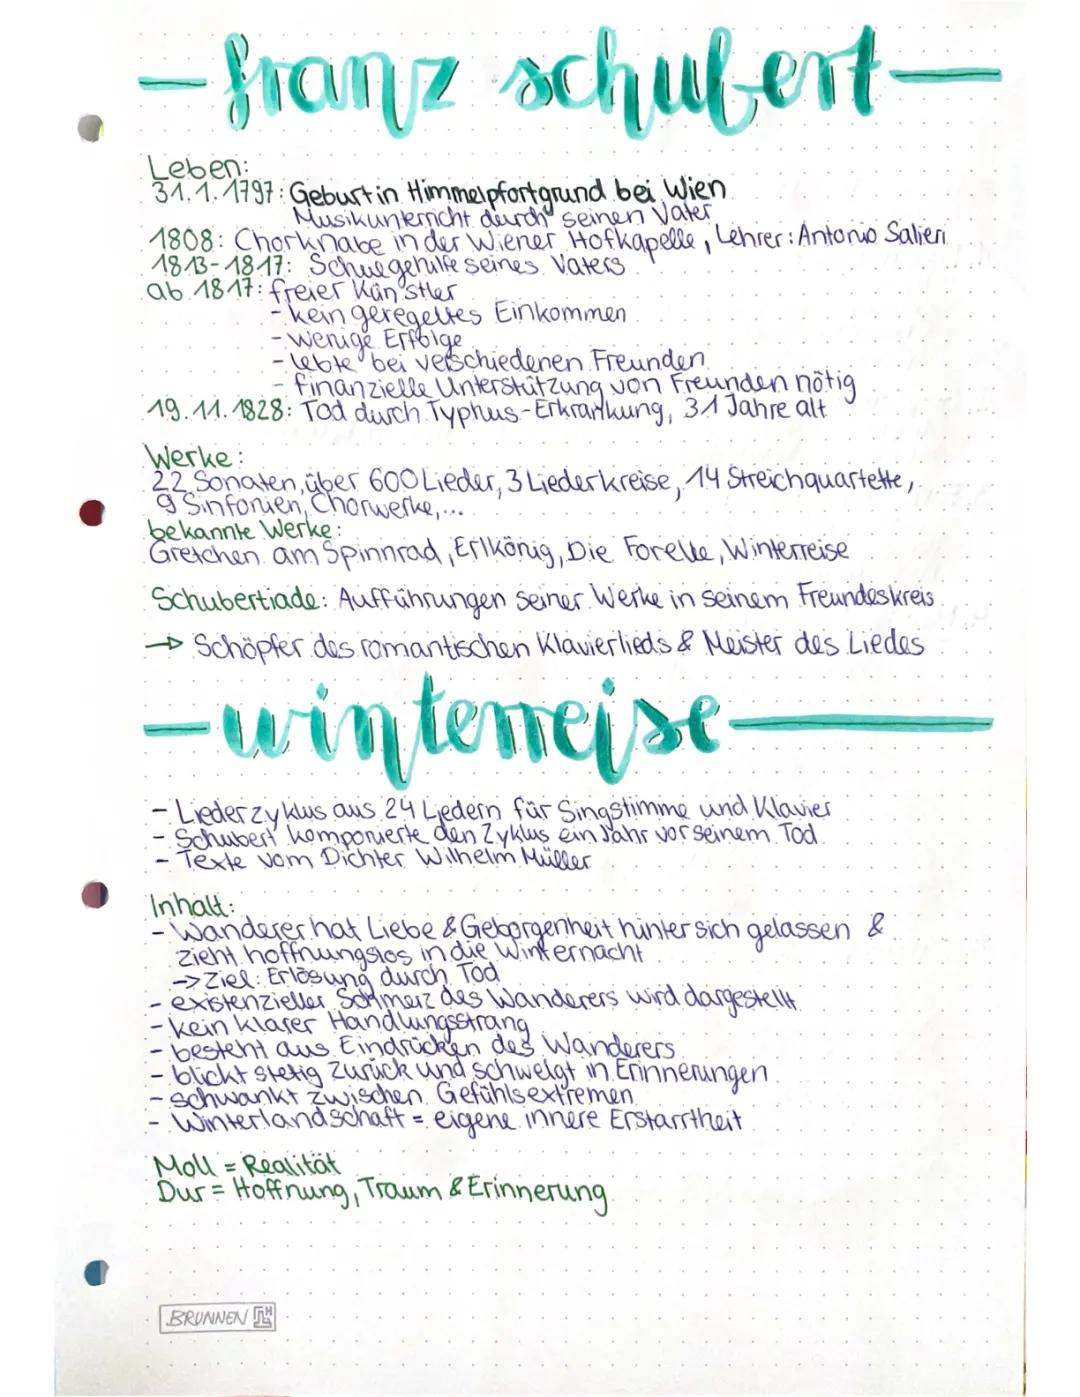 franz schubert
Leben:
31.1.1797: Geburt in Himmelpfortgrund bei Wien
Musikunterricht durch seinen Vater
1808: Chorknabe in der Wiener Hofkapelle, Lehrer: Antonio Salieri
1813-1817: Schulgehilfe seines Vaters
ab 1817: freier Künstler
- kein geregeltes Einkommen
- wenige Erfolge
- lebte bei verschiedenen Freunden
- finanzielle Unterstützung von Freunden nötig
19.11.1828: Tod durch Typhus-Erkrankung, 31 Jahre alt
Werke:
22 Sonaten, über 600 Lieder, 3 Liederkreise, 14 Streichquartette,
9 Sinfonien, Chorwerke,...
bekannte Werke:
Gretchen am Spinnrad, Erlkönig, Die Forelle, Winterreise
Schubertiade: Aufführungen seiner Werke in seinem Freundeskreis
→ Schöpfer des romantischen Klavierlieds & Meister des Liedes
winterreise
- Liederzyklus aus 24 Liedern für Singstimme und Klavier
- Schubert komponierte den Zyklus ein Jahr vor seinem Tod
- Texte vom Dichter Wilhelm Müller
Inhalt:
- Wanderer hat Liebe & Geborgenheit hinter sich gelassen &
zieht hoffnungslos in die Winternacht
→ Ziel: Erlösung durch Tod
- existenzieller Schmerz des Wanderers wird dargestellt
- kein klarer Handlungsstrang
- besteht aus Eindrücken des Wanderers
- blickt stetig zurück und schwelgt in Erinnerungen
- schwankt zwischen Gefühlsextremen
- Winterlandschaft = eigene innere Erstarrtheit
Moll = Realität
Dur = Hoffnung, Traum & Erinnerung
BRUNNEN